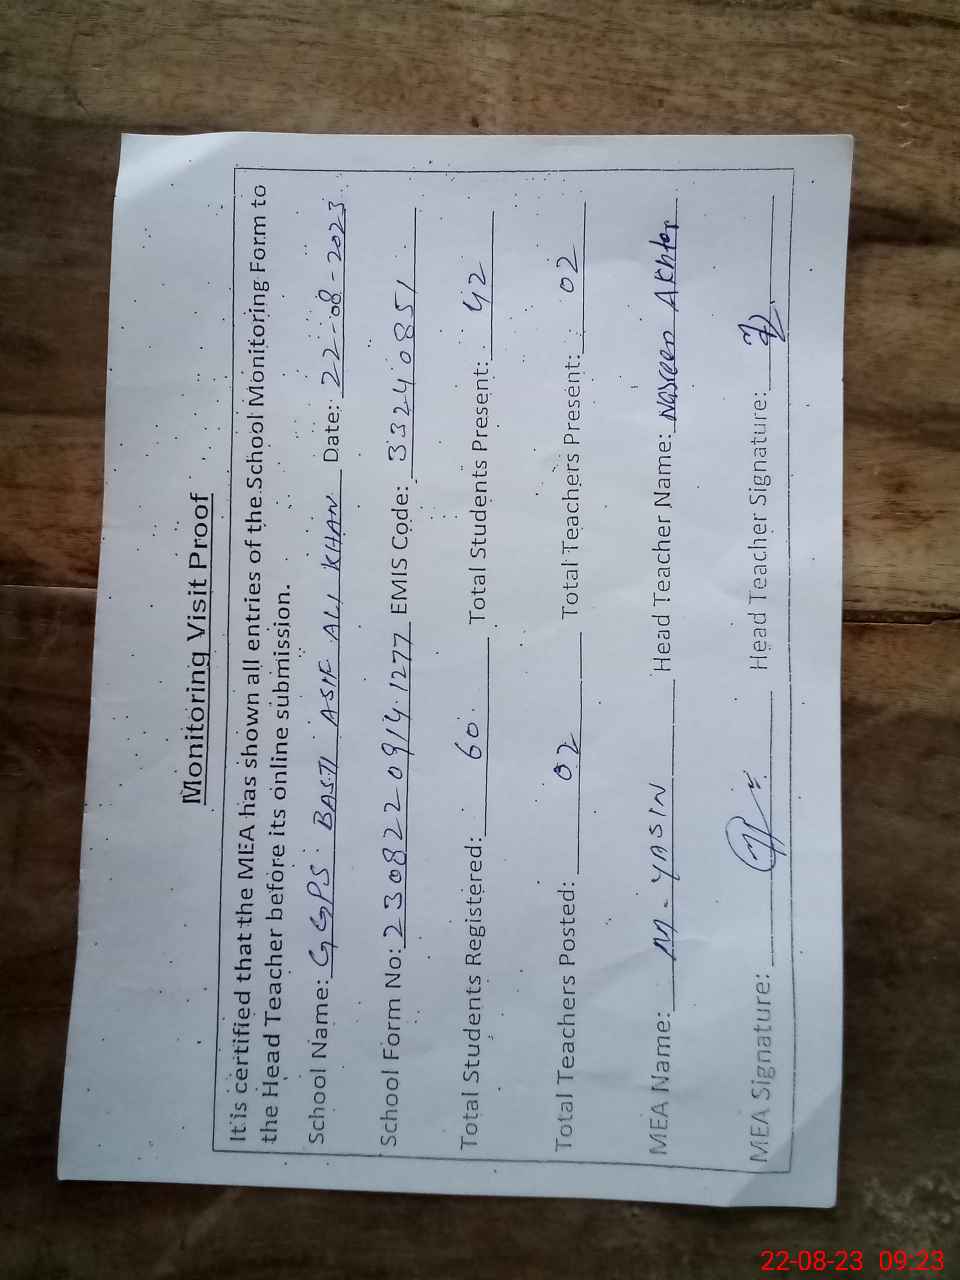 Monitoring Visit Proof
It is certified that the MEA has shown all entries of the School Monitoring Form to
the Head Teacher before its online submission.
School Name: GGPS BASTI ASIF ALI KHAN Date: 22-08-2023
School Form No: 23082209141277 EMIS Code: 33240851
Total Students Registered: 60 Total Students Present: 42
Total Teachers Posted: 02 Total Teachers Present: 02
MEA Name: M. YASIN Head Teacher Name: Nasreen Akhter
MEA Signature: Head Teacher Signature:
22-08-23 09:23